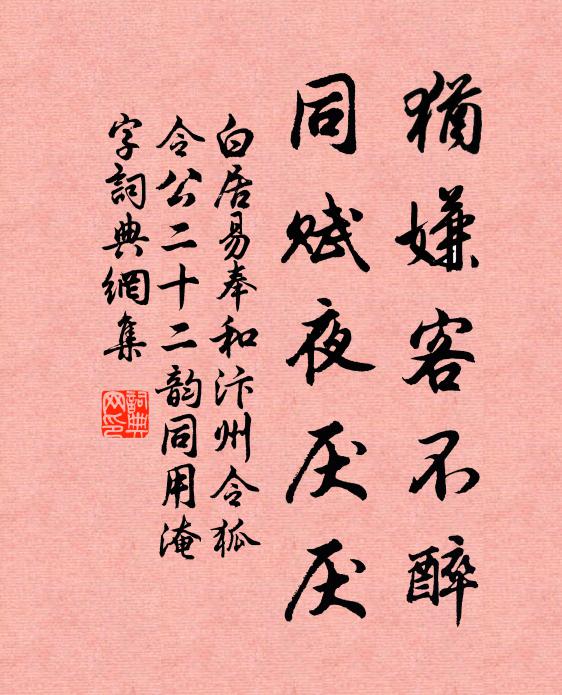 猶嫌客不醉
同賦夜厌厌
白居易奉和汴州令狐
令公二十二韵同用淹
字詞典網集
詞典网印